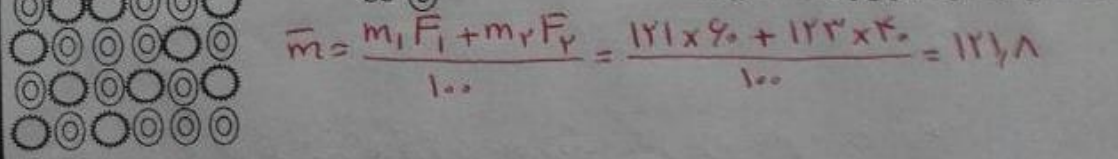 m̄ = (m₁F̄₁ + m₂F̄₂) / ۱۰۰ = (۱۲۱ × ۶۰ + ۱۲۳ × ۴۰) / ۱۰۰ = ۱۲۱٫۸